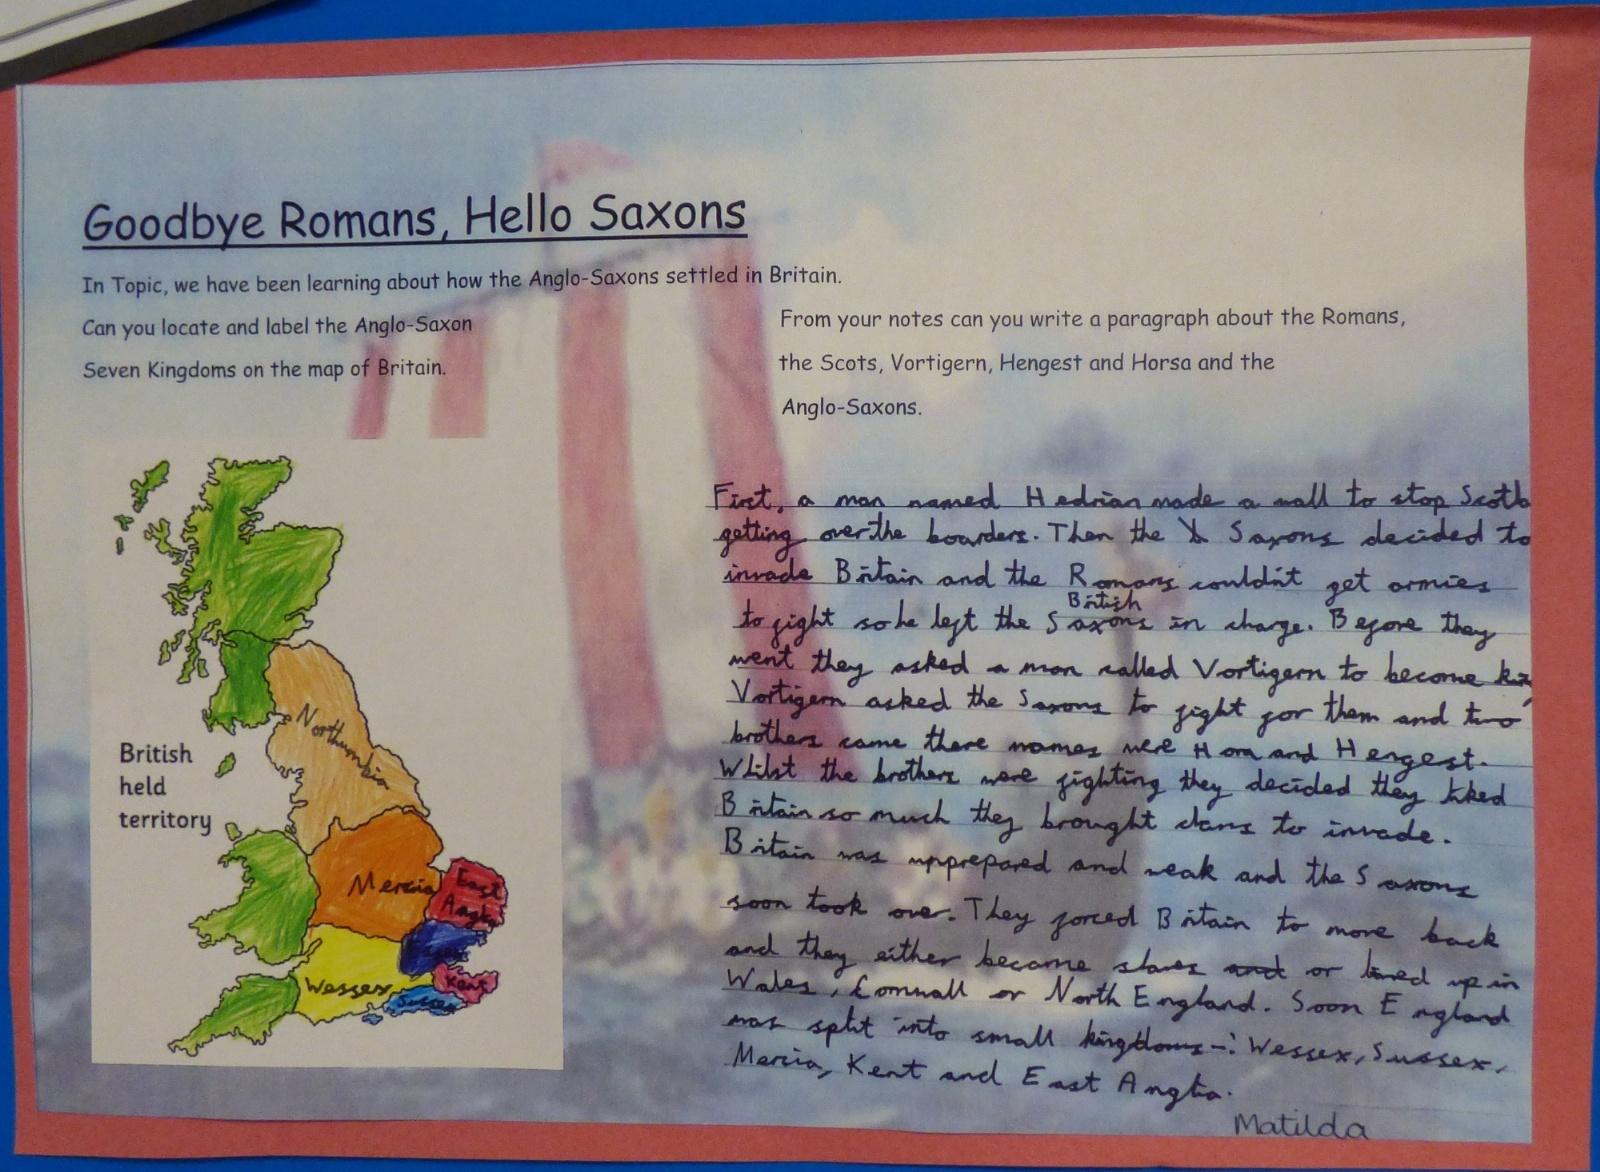 Goodbye Romans, Hello Saxons
In Topic, we have been learning about how the Anglo-Saxons settled in Britain.
Can you locate and label the Anglo-Saxon
Seven Kingdoms on the map of Britain.
From your notes can you write a paragraph about the Romans,
the Scots, Vortigern, Hengest and Horsa and the
Anglo-Saxons.
British
held
territory
Northumbia
Mercia
East
Anglia
Wessex
Kent
Sussex
First, a man named Hedrian made a wall to stop
getting over the boarders. Then the Saxons decided to
invade Britain and the Romans couldn't get armies
British
to fight so he left the Saxons in charge. Before they
went they asked a man called Vortigern to become
Vortigern asked the Saxons to fight for them and two
brothers came there names were and Hengest.
Whilst the brothers were fighting they decided they liked
Britain so much they brought clans to invade.
Britain was unprepared and weak and the Saxons
soon took over. They forced Britain to move back
and they either became slaves and or lived up in
Wales, Cornwall or North England. Soon England
was split into small kingdoms -: Wessex, Sussex,
Mercia, Kent and East Anglia.
Matilda